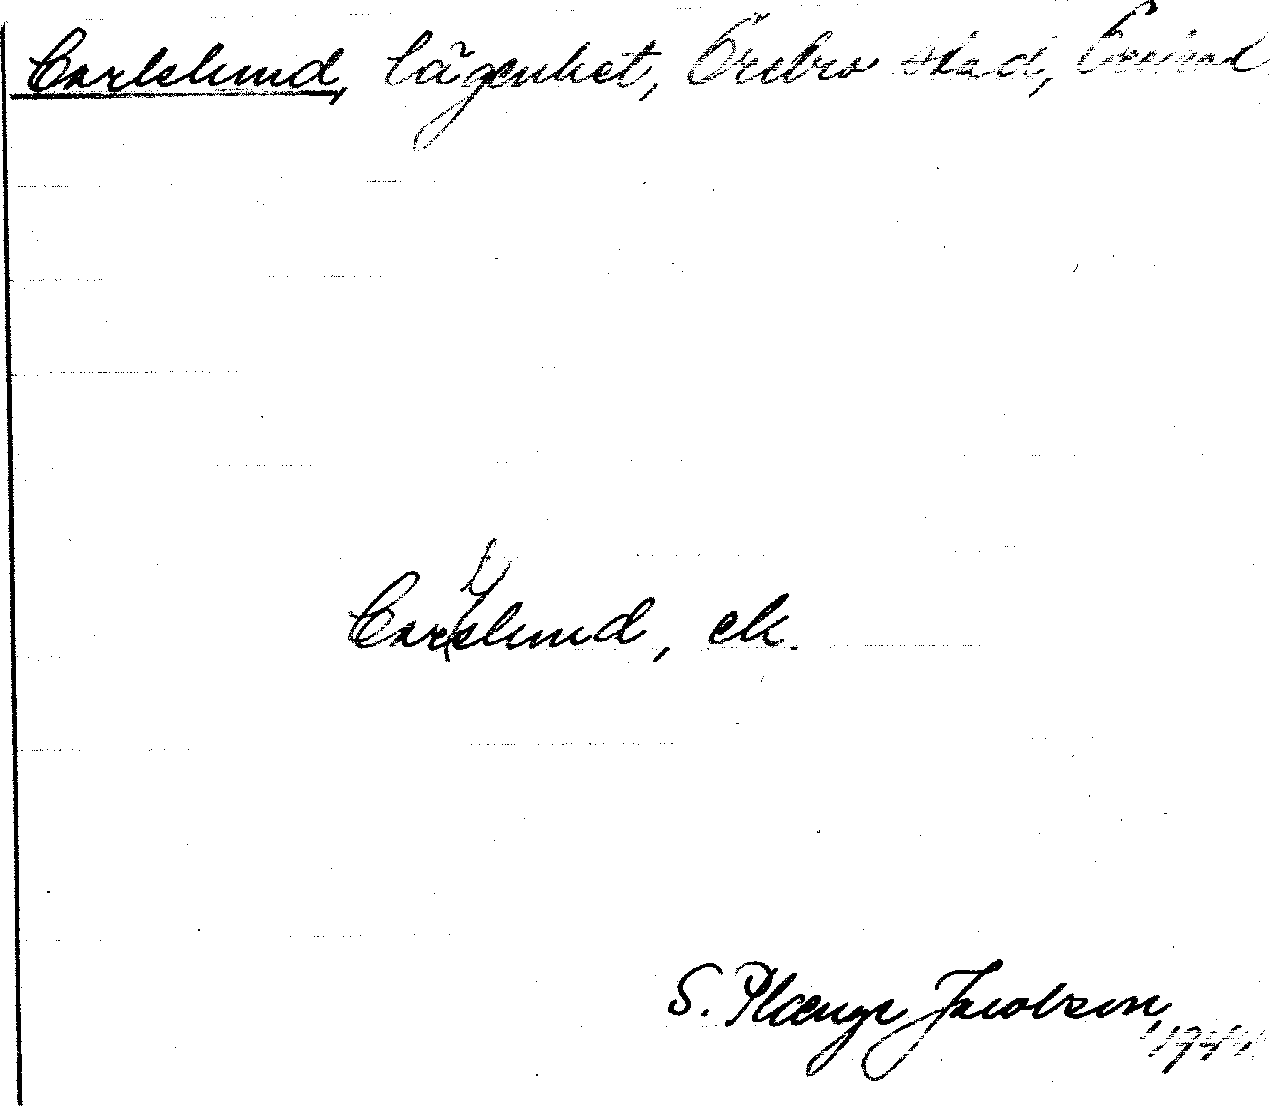 Carlslund, lägenhet, Örebro stad,
Carlslund, ek.
S. Plænge Jacobson
1944